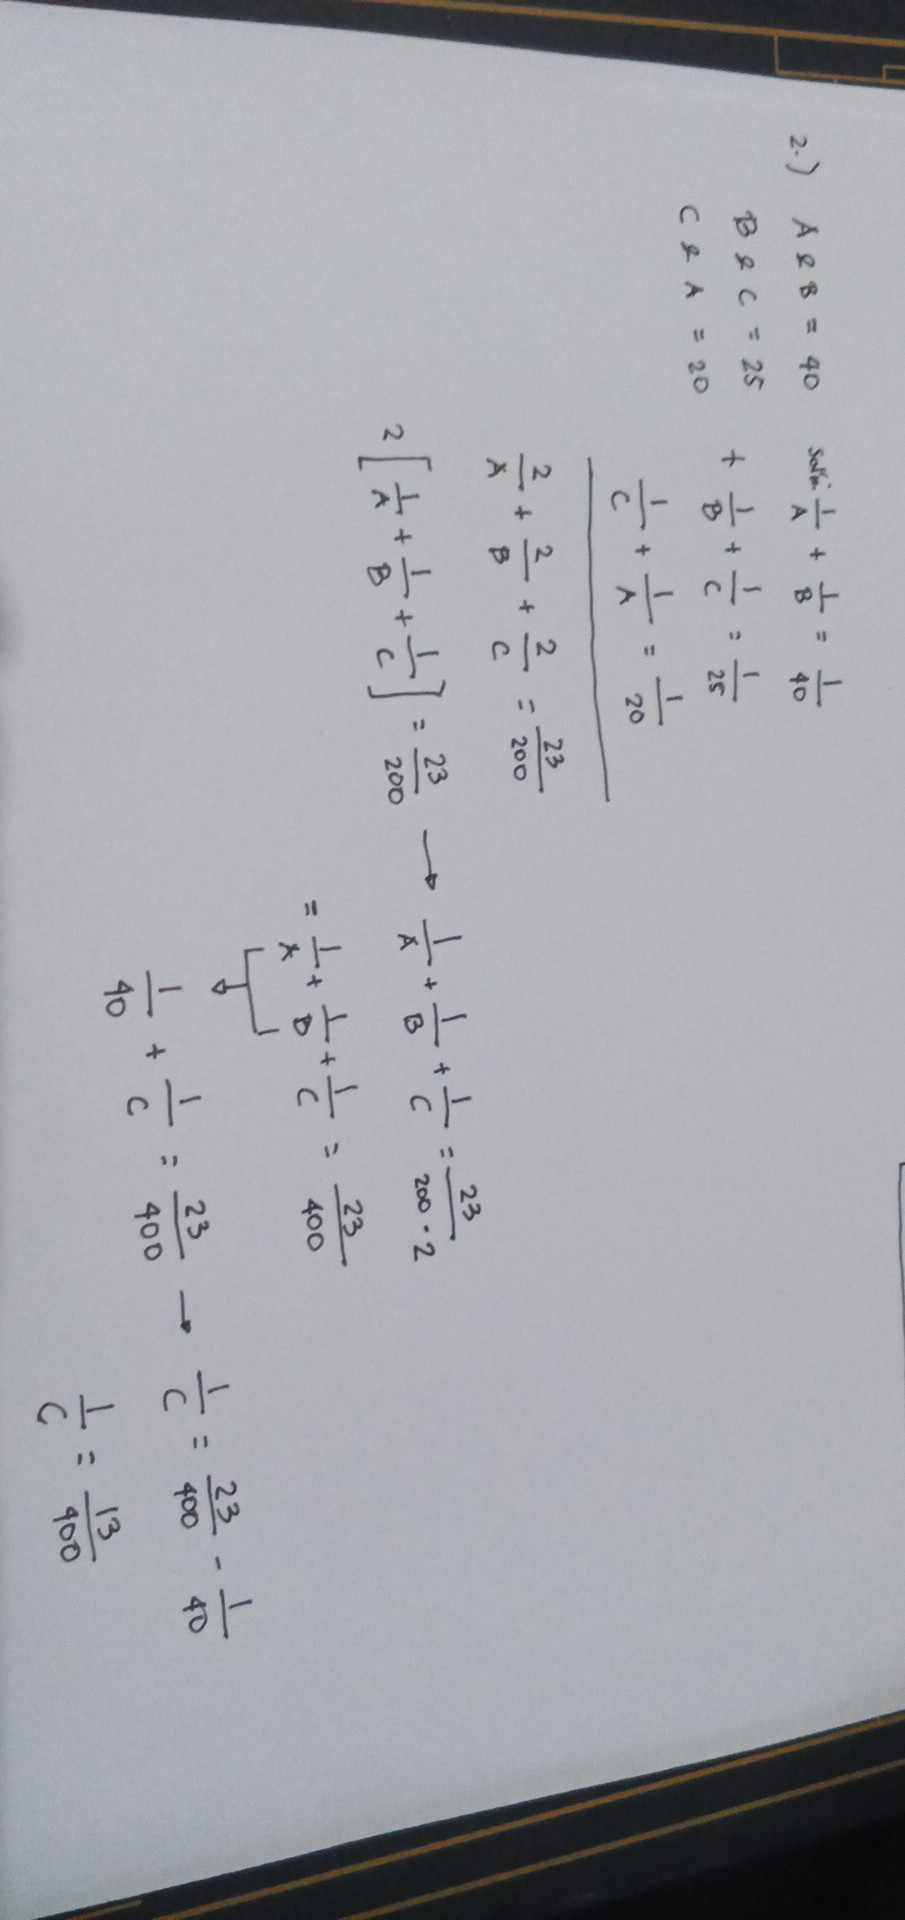 2.) A & B = 40 Sol'n 1/A + 1/B = 1/40
B & C = 25 + 1/B + 1/C = 1/25
C & A = 20
1/C + 1/A = 1/20
2/A + 2/B + 2/C = 23/200
2 [ 1/A + 1/B + 1/C ] = 23/200 → 1/A + 1/B + 1/C = 23/200 · 2
= 1/A + 1/B + 1/C = 23/400
1/40 + 1/C = 23/400 → 1/C = 23/400 - 1/40
1/C = 13/400